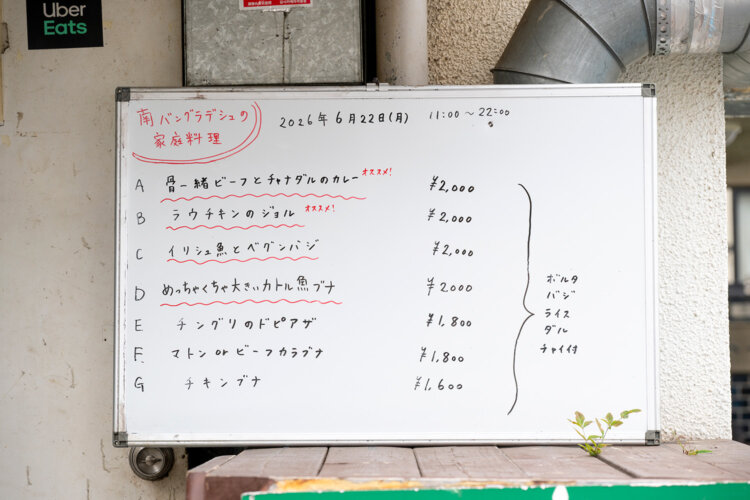 Uber
Eats
南バングラデシュの
家庭料理
2026年 6月22日(月) 11:00 ~ 22:00
A 骨一緒ビーフとチャナダルのカレー オススメ! ¥2,000
B ラウチキンのジョル オススメ! ¥2,000
C イリシュ魚とベグンバジ ¥2,000
D めっちゃくちゃ大きいカトル魚ブナ ¥2000
E チングリのドピアザ ¥1,800
F. マトン or ビーフカラブナ ¥1,800
G チキンブナ ¥1,600
ボルタ
バジ
ライス
ダル
チャイ付